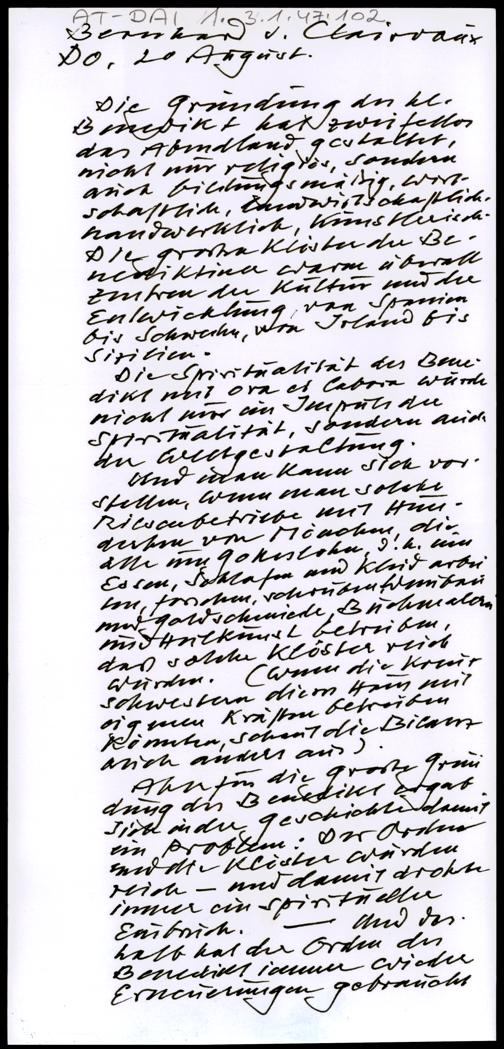 AT-DAI 1.3.1.47.102
Bernhard v. Clairvaux
Do, 20 August.
Die Gründung des hl.
Benedikt hat zweifellos
das Abendland gestaltet,
nicht nur religiös, sondern
auch bildungsmäßig, wirt-
schaftlich, landwirtschaftlich,
handwerklich, künstlerisch.
Die großen Klöster der Be-
nediktiner waren überall
Zentren der Kultur und der
Entwicklung, von Spanien
bis Schweden, von Irland bis
Sizilien.
Die Spiritualität des Bene-
dikt mit ora et labora wurde
nicht nur ein Impuls der
Spiritualität, sondern auch
der Weltgestaltung.
Und man kann sich vor-
stellen, wenn man solche
Riesenbetriebe mit Hun-
derten von Mönchen, die
alle um Gotteslohn, d.h. um
Essen, Schlafen und Kleid arbei
ten, forschen, schreiben, Weinbau
und Goldschmiede, Buchmalerei
und Heilkunst betreiben,
daß solche Klöster reich
wurden. (Wenn die Kreuz
schwestern dieses Haus mit
eigenen Kräften betreiben
könnten, schaut die Bilanz
auch anders aus).
Aber für die große Grün
dung des Benedikt ergab
sich in der Geschichte damit
ein Problem: Der Orden
und die Klöster wurden
reich – und damit drohte
immer ein spiritueller
Einbruch. — Und des-
halb hat der Orden des
Benedikt immer wieder
Erneuerungen gebraucht